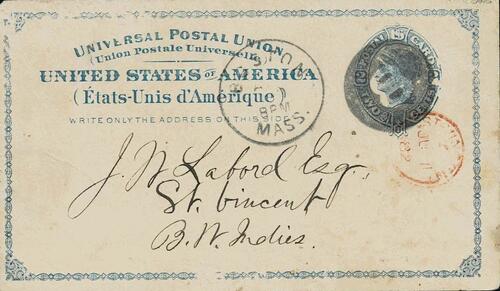 UNIVERSAL POSTAL UNION
(Union Postale Universelle)
UNITED STATES OF AMERICA
(États-Unis d'Amérique)
WRITE ONLY THE ADDRESS ON THIS SIDE
BOSTON
8PM
MASS.
POSTAL CARD
J. W. Labord Esq.,
St. Vincent
B. W. Indies.